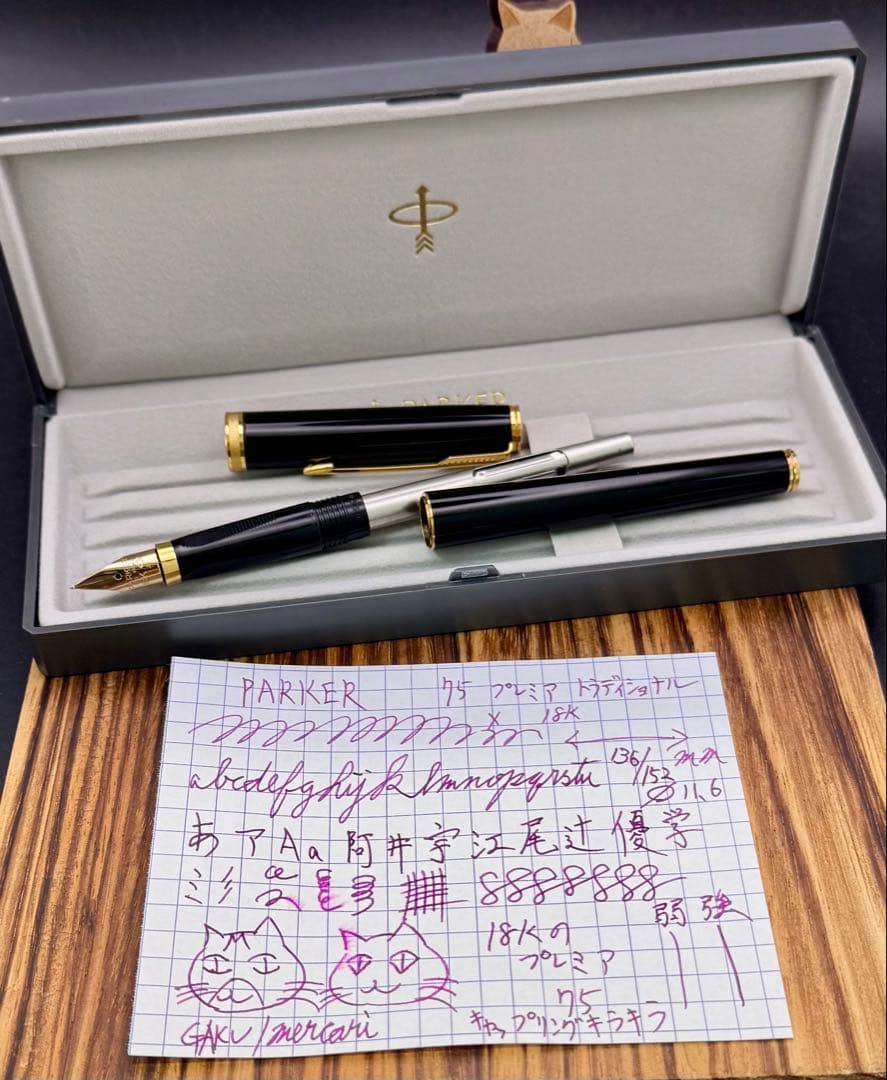 PARKER
PARKER 75 プレミア トラディショナル
X 18K
abcdefghijklmnopqrstu 136/152 mm
φ11.6
あアAa阿井宇江尾辻優学
8888888
弱 強
18Kの
プレミア
75
キャップリングキラキラ
GAKU/mercari